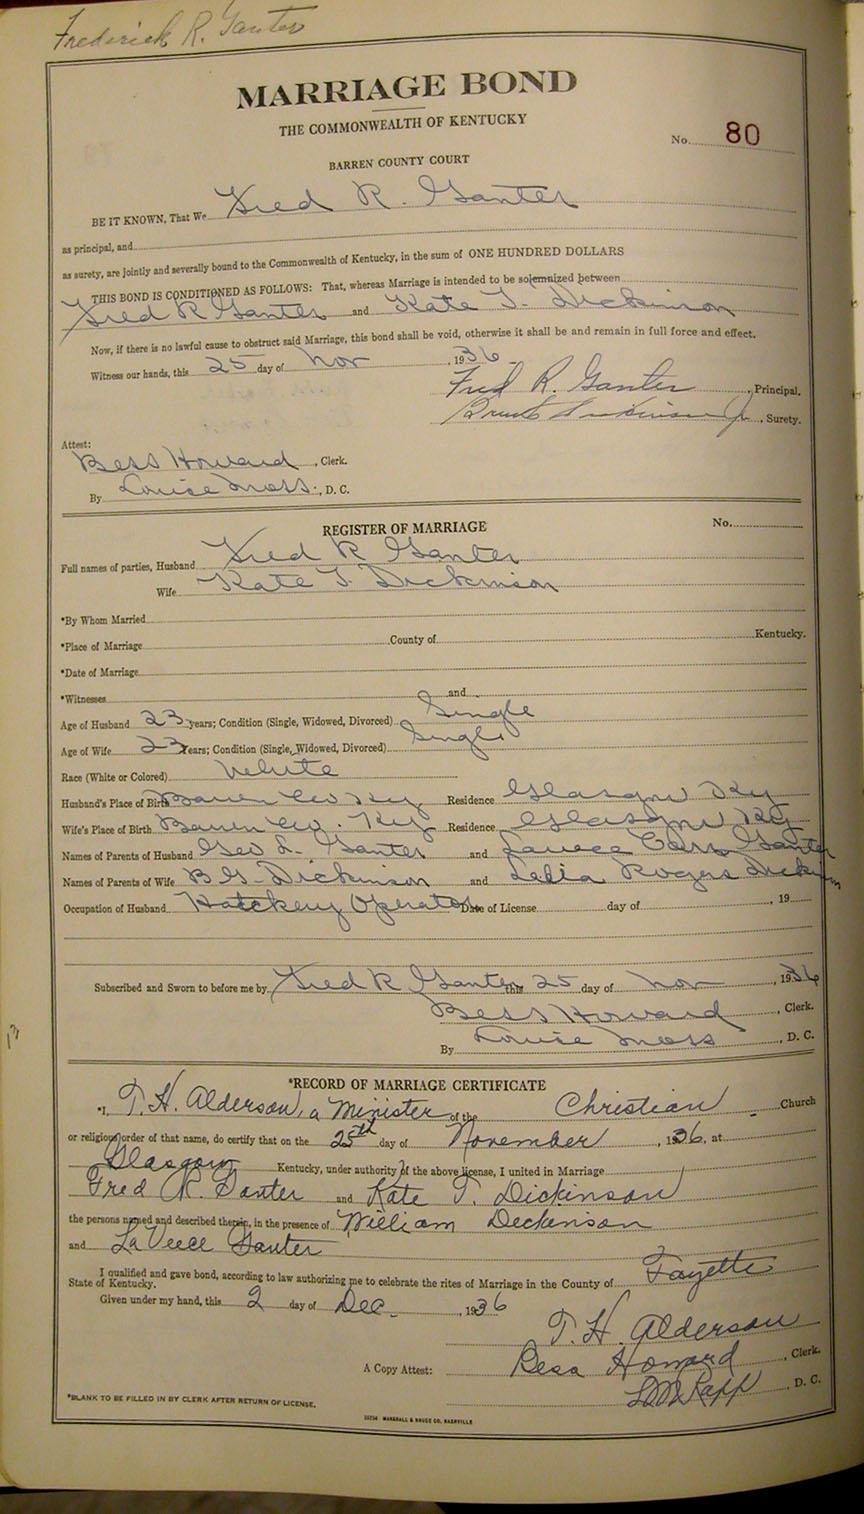 Frederick R. Ganter
MARRIAGE BOND
THE COMMONWEALTH OF KENTUCKY
No. 80
BARREN COUNTY COURT
BE IT KNOWN, That We Fred R. Ganter
as principal, and
as surety, are jointly and severally bound to the Commonwealth of Kentucky, in the sum of ONE HUNDRED DOLLARS
THIS BOND IS CONDITIONED AS FOLLOWS: That, whereas Marriage is intended to be solemnized between
Fred R Ganter and Kate T. Dickinson
Now, if there is no lawful cause to obstruct said Marriage, this bond shall be void, otherwise it shall be and remain in full force and effect.
Witness our hands, this 25 day of Nov, 1936
Fred R. Ganter, Principal.
Dickinson Jr, Surety.
Attest:
Bess Howard, Clerk.
By Louise Moss, D. C.
REGISTER OF MARRIAGE No.
Full names of parties, Husband Fred R Ganter
Wife Kate T. Dickinson
*By Whom Married
*Place of Marriage County of Kentucky.
*Date of Marriage
*Witnesses and
Age of Husband 23 years; Condition (Single, Widowed, Divorced) Single
Age of Wife 23 years; Condition (Single, Widowed, Divorced) Single
Race (White or Colored) White
Husband's Place of Birth Barren Co Ky Residence Glasgow Ky
Wife's Place of Birth Barren Co. Ky Residence Glasgow Ky
Names of Parents of Husband Geo L. Ganter and Carr Ganter
Names of Parents of Wife B G. Dickinson and Lelia Rogers Dickinson
Occupation of Husband Hatchery Operator Date of License day of , 19
Subscribed and Sworn to before me by Fred R Ganter this 25 day of Nov, 1936
Bess Howard, Clerk.
By Louise Moss, D. C.
*RECORD OF MARRIAGE CERTIFICATE
*I, T. H. Alderson, a Minister of the Christian Church
or religious order of that name, do certify that on the 25th day of November, 1936, at
Glasgow Kentucky, under authority of the above license, I united in Marriage
Fred R. Ganter and Kate T. Dickinson
the persons named and described therein, in the presence of William Dickenson
and LaVeece Ganter
I qualified and gave bond, according to law authorizing me to celebrate the rites of Marriage in the County of Fayette
State of Kentucky.
Given under my hand, this 2 day of Dec., 1936
T. H. Alderson
A Copy Attest: Bess Howard, Clerk.
Rapp, D. C.
*BLANK TO BE FILLED IN BY CLERK AFTER RETURN OF LICENSE.
MARSHALL & BRUCE CO. NASHVILLE